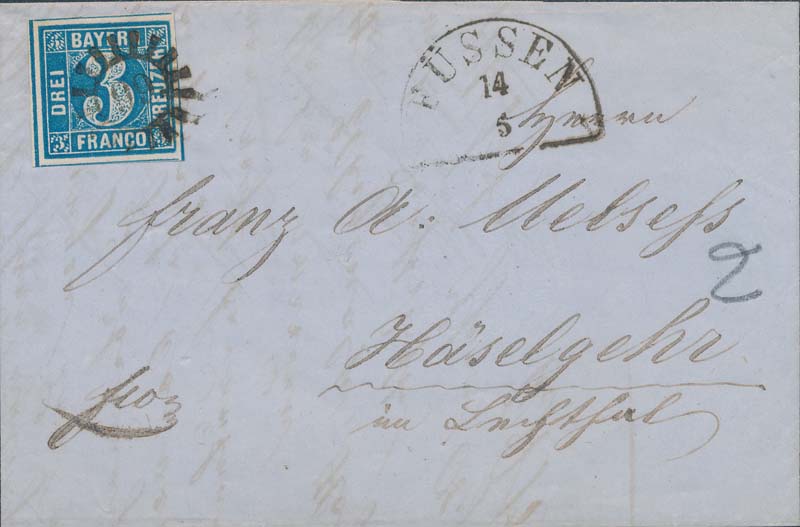 BAYERN
DREI
3
KREUZER
FRANCO
FÜSSEN
14
5
Herrn
Franz A:
2
Häselgehr
im Lechthal